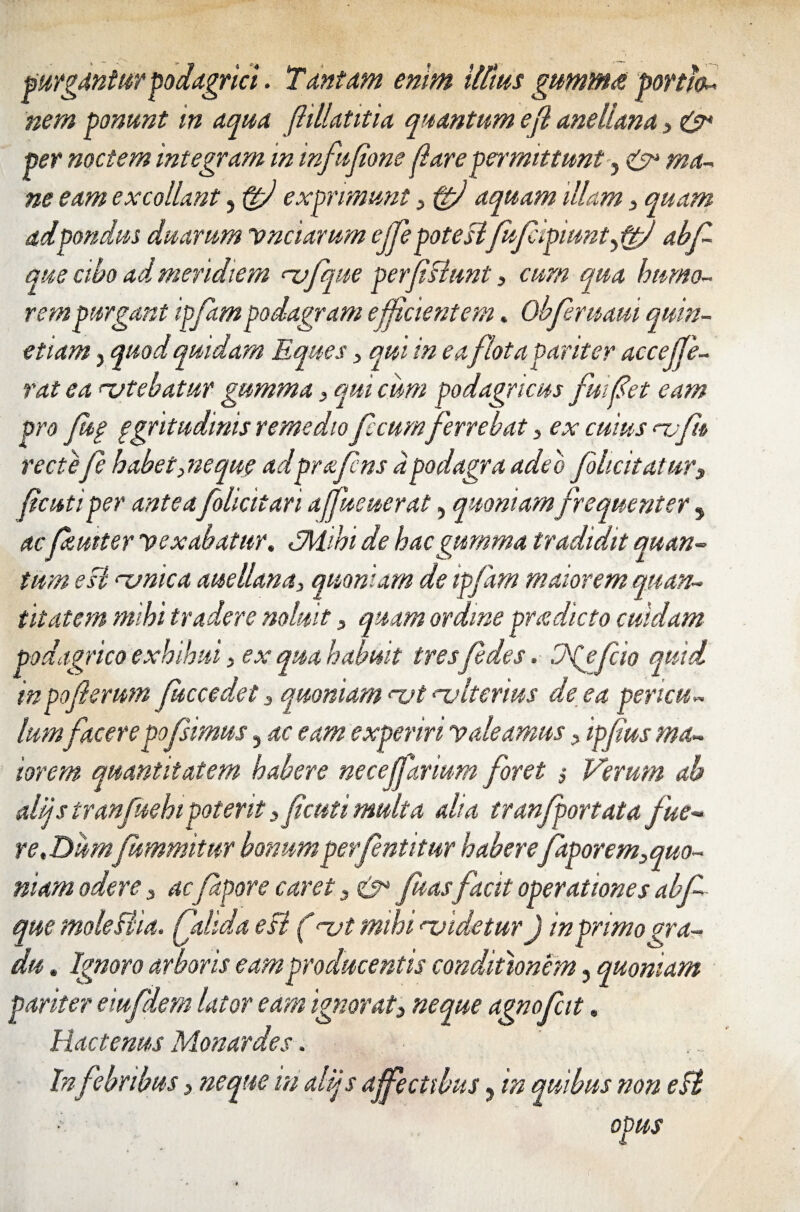 purgantur podagrici. Tantam enim illius gummæ portio-
nem ponunt in aqua ſtillatitia quantum eſt anellana, &
per noctem integram in infuſione ſtare permittunt, & ma-
ne eam excollant, & exprimunt, & aquam illam, quam
adpondus duarum vnciarum eſſe poteſt ſuſcipiunt, & abſ-
que cibo ad meridiem vſque perſiſtunt, cum qua humo-
rem purgant ipſam podagram efficientem. Obſeruaui quin-
etiam, quod quidam Eques, qui in ea flota pariter acceſſe-
rat ea vtebatur gumma, qui cùm podagricus fuiſſet eam
pro ſuę ęgritudinis remedio ſecum ferrebat, ex cuius vſu
rectè ſe habet, neque ad præſens à podagra adeò ſolicitatur,
ſicuti per antea ſolicitari aſſueuerat, quoniam frequenter,
ac ſæuiter vexabatur. Mihi de hac gumma tradidit quan-
tum eſt vnica auellana, quoniam de ipſam maiorem quan-
titatem mihi tradere noluit, quam ordine prædicto cuidam
podagrico exhihui, ex qua habuit tres ſedes. Neſcio quid
in poſterum ſuccedet, quoniam vt vlterius de ea pericu-
lum facere poſsimus, ac eam experiri valeamus, ipſius ma-
iorem quantitatem habere neceſſarium foret; Verum ab
alijs tranſuehi poterit, ſicuti multa alia tranſportata fue-
re. Dùm ſummitur bonum perſentitur habere ſaporem, quo-
niam odere, ac ſapore caret, & ſuas facit operationes abſ-
que moleſtia. Calida eſt (vt mihi videtur) in primo gra-
du. Ignoro arboris eam producentis conditionèm, quoniam
pariter eiuſdem lator eam ignorat, neque agnoſcit.
Hactenus Monardes.
In febribus, neque in alijs affectibus, in quibus non eſt
opus